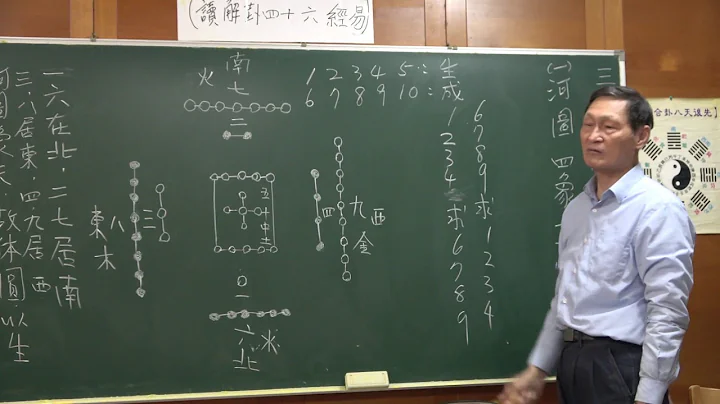 (讀解卦四十六經易)
三
(一)河圖四象
1 2 3 4 5:生
6 7 8 9 10:成
1 6
2 7
3 8
4 9
求 求
6 1
7 2
8 3
9 4
南
火 七
二
東 八 三
木
五十中土
四 九 西
金
一
六 水
北
一六在北,二七居南
三.八居東.四九居西
故体圓以生
【合卦八天誼先】